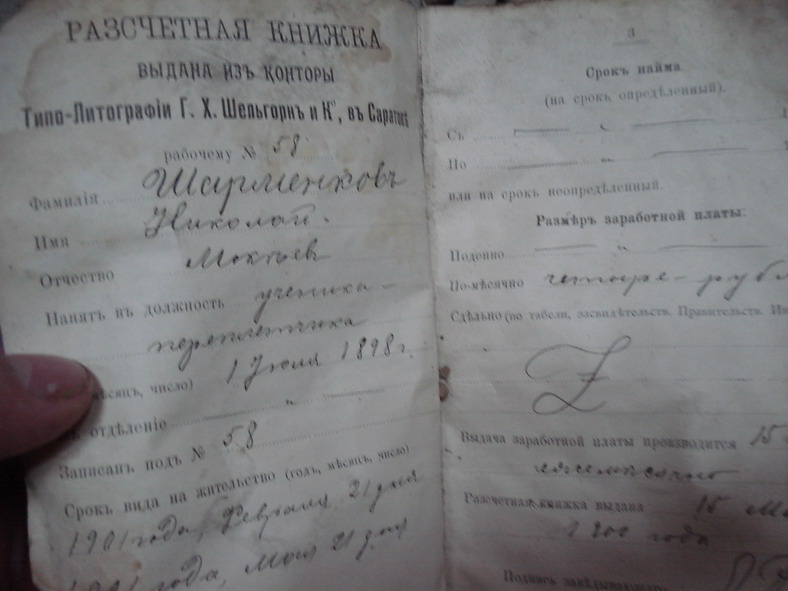 РАЗСЧЕТНАЯ КНИЖКА
ВЫДАНА ИЗЪ КОНТОРЫ
Типо-Литографіи Г. Х. Шельгорнъ и К°, въ Саратовѣ
рабочему № 58
Фамилія Шарменковъ
Имя Николай.
Отчество
Нанятъ въ должность ученика-
переплетчика
мѣсяцъ, число) 1 Іюля 1898 г.
въ отдѣленіе "
Записанъ подъ № 58
Срокъ вида на жительство (годъ, мѣсяцъ, число)
1901 года, Февраля 21 дня
1901 года, Мая 21 дня
3
Срокъ найма
(на срокъ опредѣленный).
Съ "
По "
или на срокъ неопредѣленный.
Размѣръ заработной платы:
Поденно "
По-мѣсячно четыре-
Сдѣльно (по табели, засвидѣтельств. Правительств.
Z
Выдача заработной платы производится 15
ежемесячно
Разсчетная книжка выдана 15
1900 года
Подпись